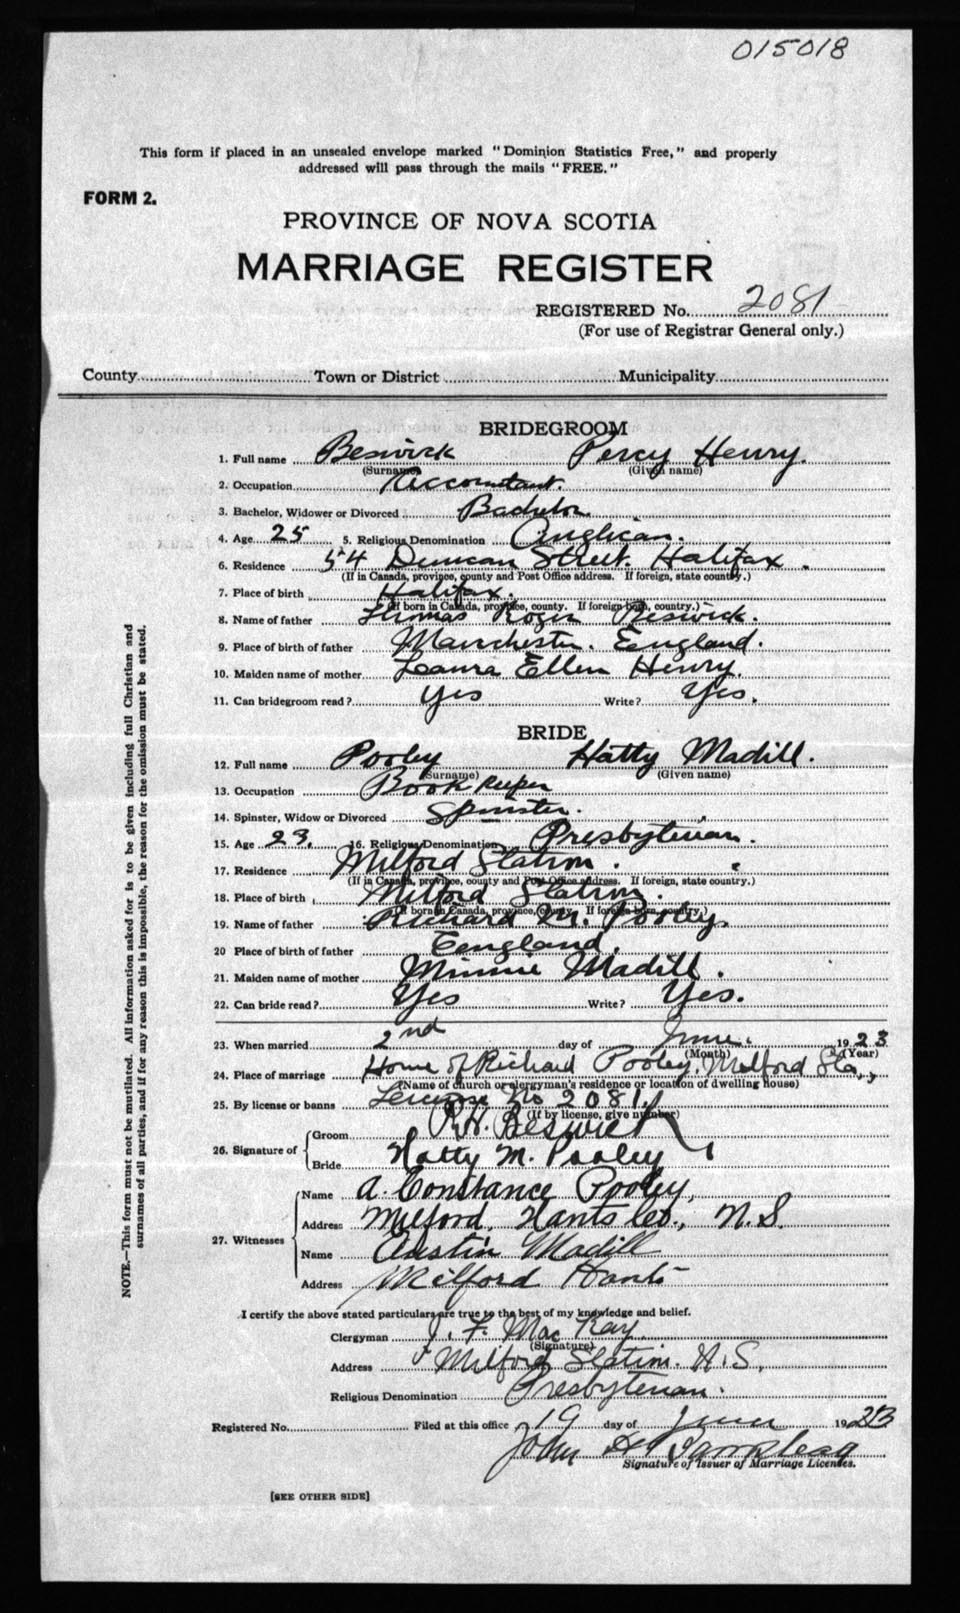 015018
This form if placed in an unsealed envelope marked "Dominion Statistics Free," and properly
addressed will pass through the mails "FREE."
FORM 2.
PROVINCE OF NOVA SCOTIA
MARRIAGE REGISTER
REGISTERED No. 2081
(For use of Registrar General only.)
County Town or District Municipality
BRIDEGROOM
1. Full name Beswick Percy Henry.
(Surname) (Given name)
2. Occupation Accountant.
3. Bachelor, Widower or Divorced Bachelor
4. Age 25 5. Religious Denomination Anglican.
6. Residence 54 Duncan Street. Halifax.
(If in Canada, province, county and Post Office address. If foreign, state country.)
7. Place of birth Halifax.
(If born in Canada, province, county. If foreign born, country.)
8. Name of father Thomas Roger Beswick.
9. Place of birth of father Manchester. England.
10. Maiden name of mother Laura Ellen Henry.
11. Can bridegroom read? Yes Write? Yes.
BRIDE
12. Full name Pooley Hatty Madill.
(Surname) (Given name)
13. Occupation Book keeper
14. Spinster, Widow or Divorced Spinster.
15. Age 23, 16. Religious Denomination Presbyterian.
17. Residence Milford Station.
(If in Canada, province, county and Post Office address. If foreign, state country.)
18. Place of birth Milford Station.
(If born in Canada, province, county. If foreign born, country.)
19. Name of father Richard M. Pooley.
20 Place of birth of father England.
21. Maiden name of mother Minnie Madill.
22. Can bride read? Yes Write? Yes.
23. When married 2nd day of June. 1923
(Month) (Year)
24. Place of marriage Home of Richard Pooley. Milford Sta.,
(Name of church or clergyman's residence or location of dwelling house)
25. By license or banns License No 2081.
(If by license, give number)
26. Signature of Groom P.H. Beswick
Bride Hatty M. Pooley
27. Witnesses Name A. Constance Pooley,
Address Milford, Hants Co., N.S.
Name Austin Madill
Address Milford Hants
I certify the above stated particulars are true to the best of my knowledge and belief.
Clergyman J. F. MacKay
(Signature)
Address Milford Station. N.S.
Religious Denomination Presbyterian.
Registered No. Filed at this office 19 day of June 1923
John H
Signature of Issuer of Marriage Licenses.
[SEE OTHER SIDE]
NOTE.—This form must not be mutilated. All information asked for is to be given including full Christian and
surnames of all parties, and if for any reason this is impossible, the reason for the omission must be stated.